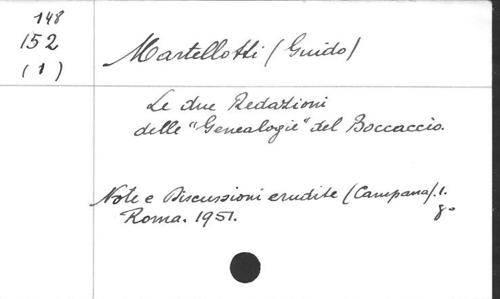 148
152
(1)
Martellotti (Guido)
Le due Redazioni
delle "Genealogie" del Boccaccio.
Note e Discussioni erudite (Campana). 1.
Roma. 1951.
8º